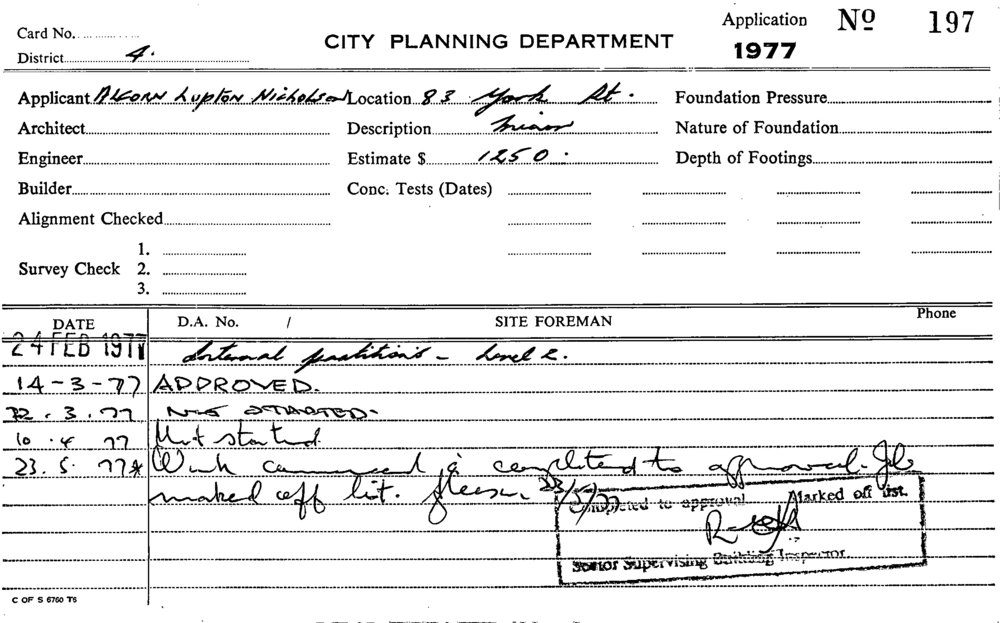 Card No. Application No 197
District 4. CITY PLANNING DEPARTMENT 1977
Applicant Alcorn Lupton Nicholson Location 83 York St. Foundation Pressure
Architect Description Minor Nature of Foundation
Engineer Estimate $ 1250. Depth of Footings
Builder Conc. Tests (Dates)
Alignment Checked
1.
Survey Check 2.
3.
DATE D.A. No. / SITE FOREMAN Phone
24 FEB 1977 Internal partitions - Level 2.
14-3-77 APPROVED.
22.3.77 NOT STARTED.
10.4 77 Not started
23.5 77* Work commenced & completed to approval. Job
marked off list. 23/5/77
Completed to approval Marked off list.
Senior Supervising Building Inspector
C OF S 6760 T6